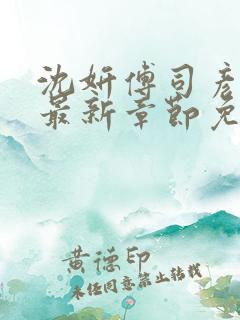 沈妍傅司彦
最新章节免
黄德印
未经同意禁止转载